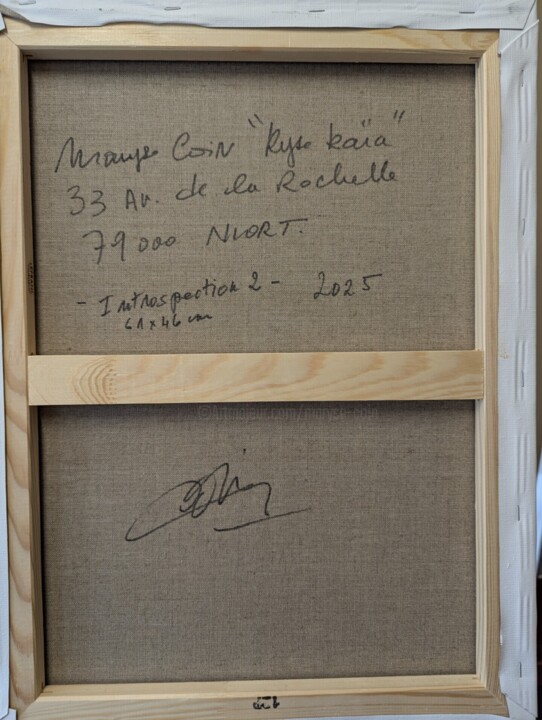 Maryse Coin "Kyse Kaïa"
33 Av. de la Rochelle
79000 NIORT.
- Introspection 2 - 2025
61 x 46 cm